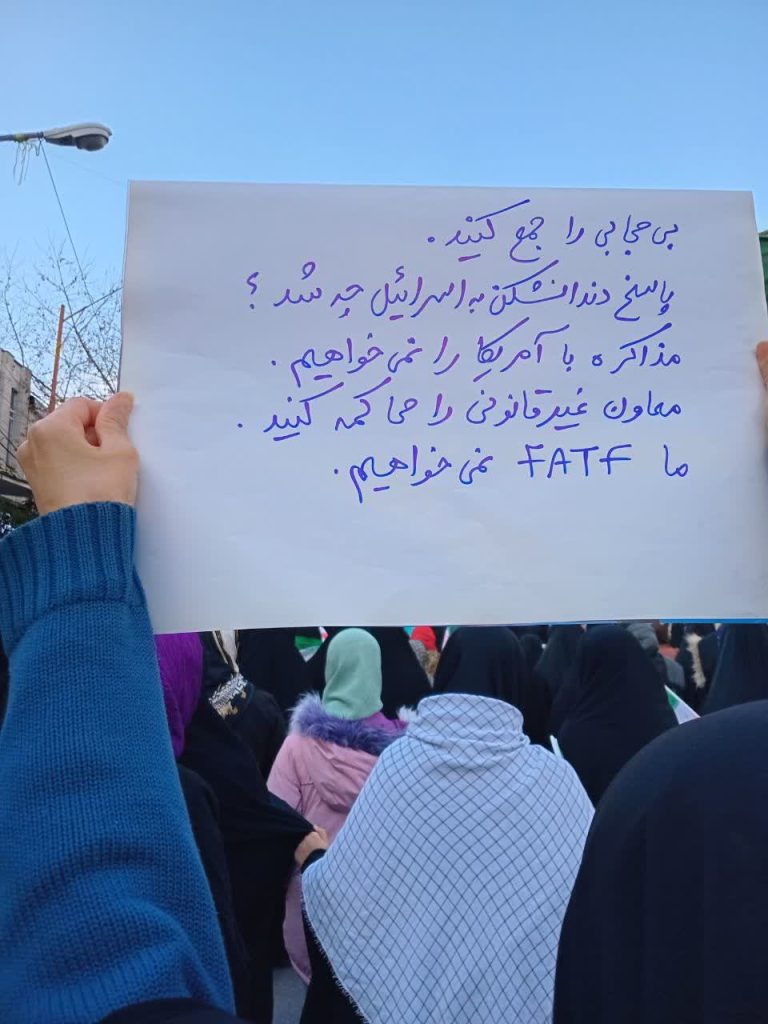 بی حجابی را جمع کنید.
پاسخ دندانشکن به اسرائیل چه شد ؟
مذاکره با آمریکا را نمی خواهیم.
معاون غیرقانونی را محاکمه کنید.
ما FATF نمی خواهیم.